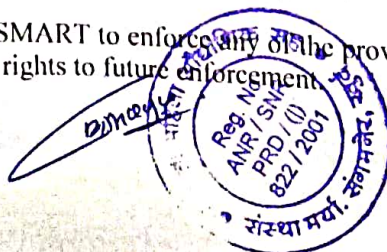 SMART to enforce any of the prov
rights to future enforcement.
Reg. No.
ANR / SNR
PRD / (I)
822 / 2001
औद्योगिक सह
संस्था मर्या. संगमनेर.